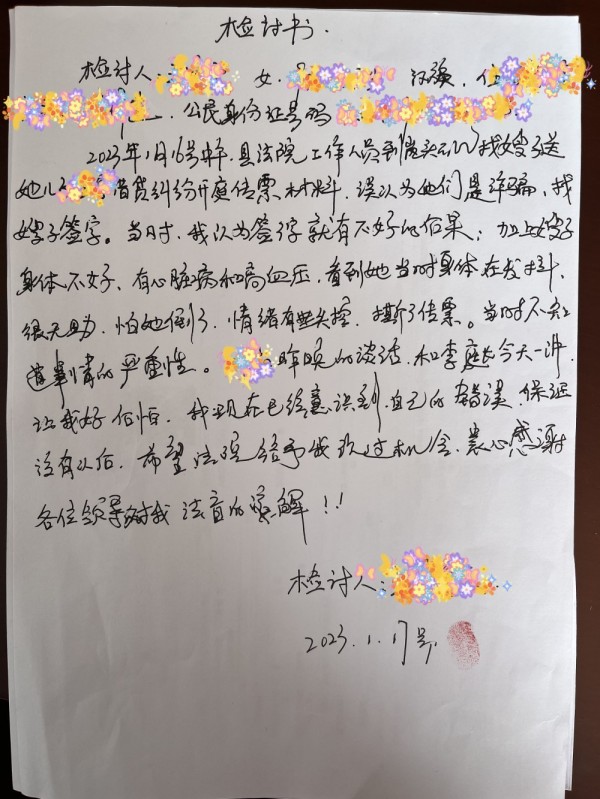 检讨书.
检讨人: 女, 汉族, 住
公民身份证号码
2023年1月16号中午.县法院工作人员到 找嫂子送
她儿 借贷纠纷开庭传票材料.误认为她们是诈骗,找
嫂子签字。当时,我认为签字就有不好的后果;加上嫂子
身体不好,有心脏病和高血压,看到她当时身体在发抖,
很无助,怕她倒了,情绪有些失控,撕了传票。当时不知
道事情的严重性。 昨晚的谈话,和李庭长今天一讲,
让我好后怕,我现在已经意识到自己的错误,保证
没有以后,希望法院给予我改过机会,衷心感谢
各位领导对我 法盲的谅解!!
检讨人:
2023.1.17号.